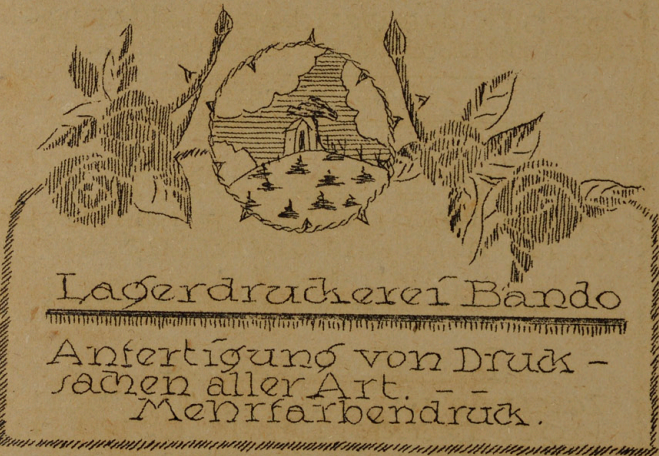 Lagerdruckerei Bando
Anfertigung von Druck-
sachen aller Art. — —
Mehrfarbendruck.